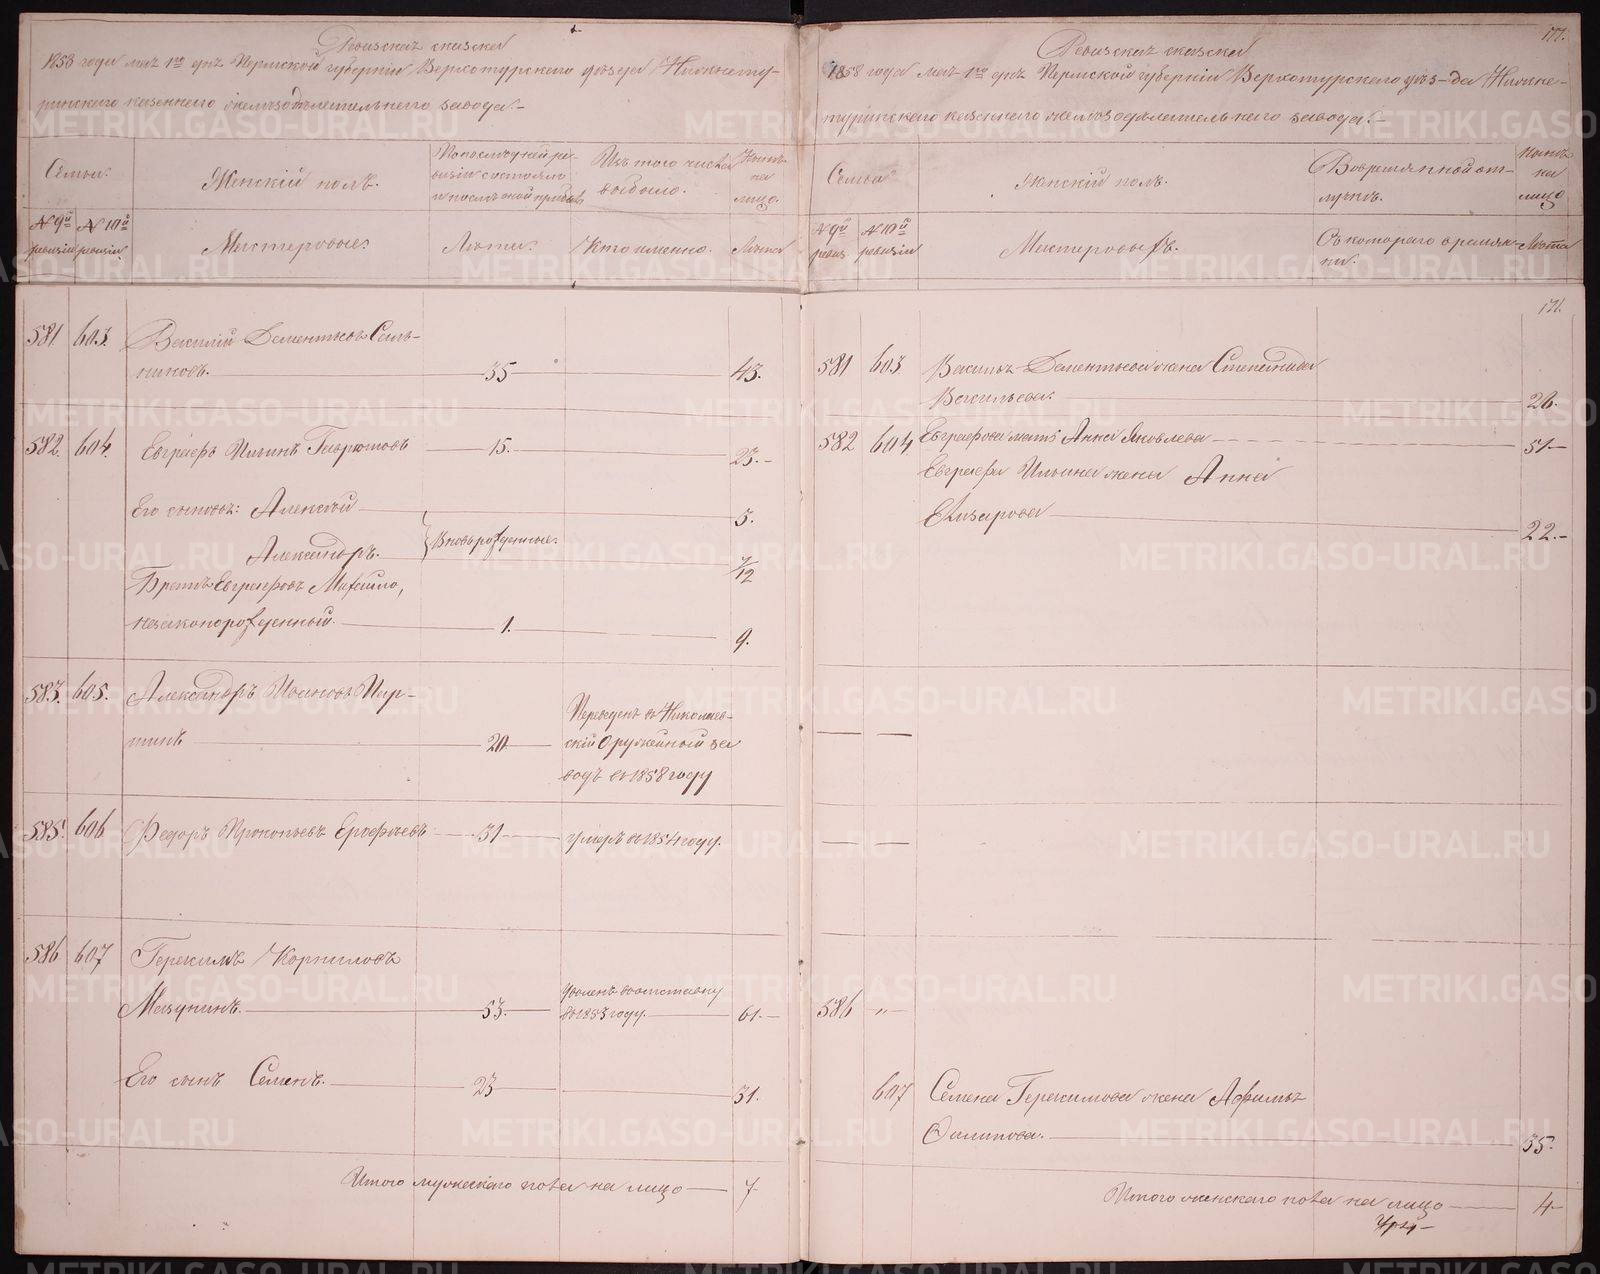 Ревизская сказка
1858 года мая 1го дня Пермской губерніи Верхотурскаго уѣзда Нижнету-
ринскаго казеннаго желѣзодѣлательнаго завода.-
Семьи.
Женскій полъ.
По послѣдней ре-
визіи состояло
и послѣ оной прибыло
Изъ того числа
выбыло.
Нынѣ
на
лицо.
№ 9й ревизіи
№ 10й ревизіи.
Мастеровые
Лѣта.
Кто именно.
Лѣта
581. 603. Василій Дементьевъ Саль-
никовъ. 35 43.
582. 604. Евграфъ Ильинъ Гаврюшовъ 15. 23.-
Его сыновья: Алексѣй 3.
Александръ. Вновьрожденные. 7/12
Братъ Евграфовъ Михайло,
незаконорожденный. 1. 9.
583. 605. Александръ Ивановъ Пар-
шинъ 20.
Переведенъ въ Николаев-
скій Оружейный за
водъ въ 1858 году
585. 606 Федоръ Прокопьевъ Ерофѣевъ 31 умеръ въ 1854 году.
586 607 Герасимъ Корниловъ
Мазунинъ. 53. Уволенъ въ отставку
въ 1853 году. 61.-
Его сынъ Семенъ. 23 31.
Итого мужескаго пола на лицо 7
177.
Ревизская сказка
1858 года мая 1го дня Пермской губерніи Верхотурскаго уѣз-да Нижне-
туринскаго казеннаго желѣзодѣлательнаго завода.-
Семьи
Женскій полъ.
Во временной от-
лучкѣ.
Нынѣ
на
лицо
№ 9й ревиз
№ 10й ревизіи
Мастеровыхъ.
Съ котораго времен-
ни.
Лѣта
171.
581 603 Василья Дементьева жена Степанида
Васильева. 26.
582 604 Евграфова мать Анна Яковлева 51
Евграфа Ильина жена Анна
Елизарова 22.-
586 „
607 Семена Герасимова жена Афимья
Осипова. 35.
Итого женскаго пола на лицо 4